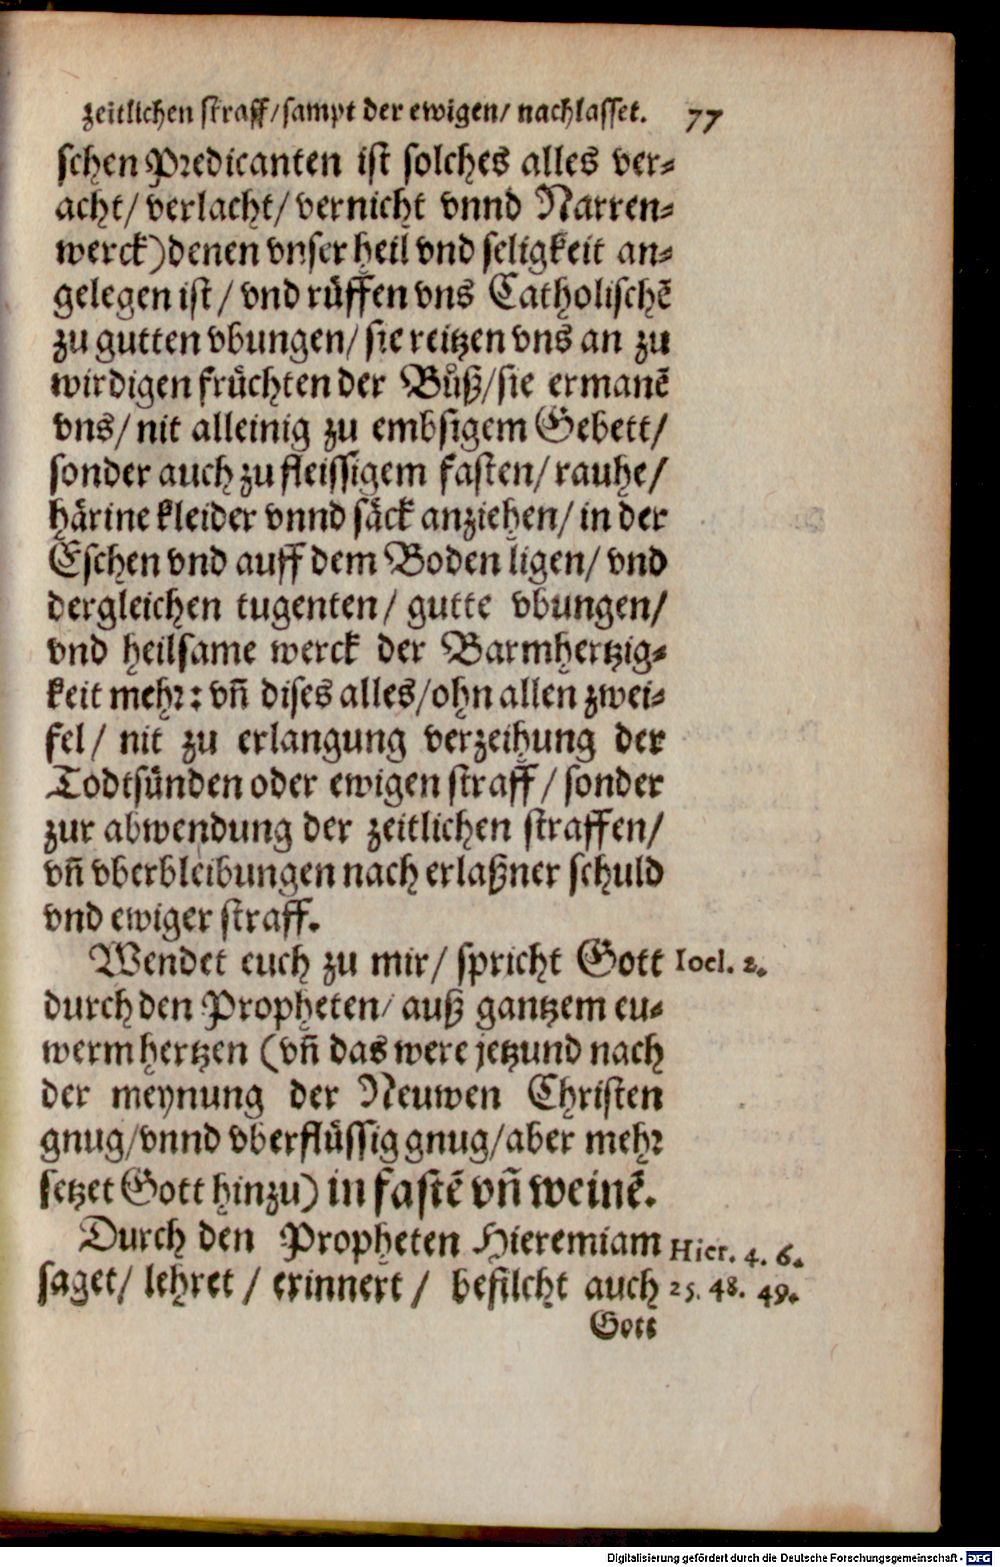 zeitlichen straff/sampt der ewigen/ nachlasset. 77
schen Predicanten ist solches alles ver⸗
acht/ verlacht/ vernicht vnnd Narren⸗
werck) denen vnser heil vnd seligkeit an⸗
gelegen ist/ vnd rüffen vns Catholischē
zu gutten vbungen/ sie reitzen vns an zu
wirdigen früchten der Bůß/sie ermanē
vns/ nit alleinig zu embsigem Gebett/
sonder auch zu fleissigem fasten/ rauhe/
härine kleider vnnd säck anziehen/ in der
Eschen vnd auff dem Boden ligen/ vnd
dergleichen tugenten/ gutte vbungen/
vnd heilsame werck der Barmhertzig⸗
keit mehr: vn̄ dises alles/ohn allen zwei⸗
fel/ nit zu erlangung verzeihung der
Todtsünden oder ewigen straff/ sonder
zur abwendung der zeitlichen straffen/
vn̄ vberbleibungen nach erlaßner schuld
vnd ewiger straff.
Wendet euch zu mir/ spricht Gott Ioel. 2.
durch den Propheten/ auß gantzem eu⸗
werm hertzen (vn̄ das were jetzund nach
der meynung der Neuwen Christen
gnug/vnnd vberflüssig gnug/aber mehr
setzet Gott hinzu) in fastē vn̄ weinē.
Durch den Propheten Hieremiam Hier. 4. 6.
saget/ lehret/ erinnert/ befilcht auch 25. 48. 49.
Gott
Digitalisierung gefördert durch die Deutsche Forschungsgemeinschaft - DFG